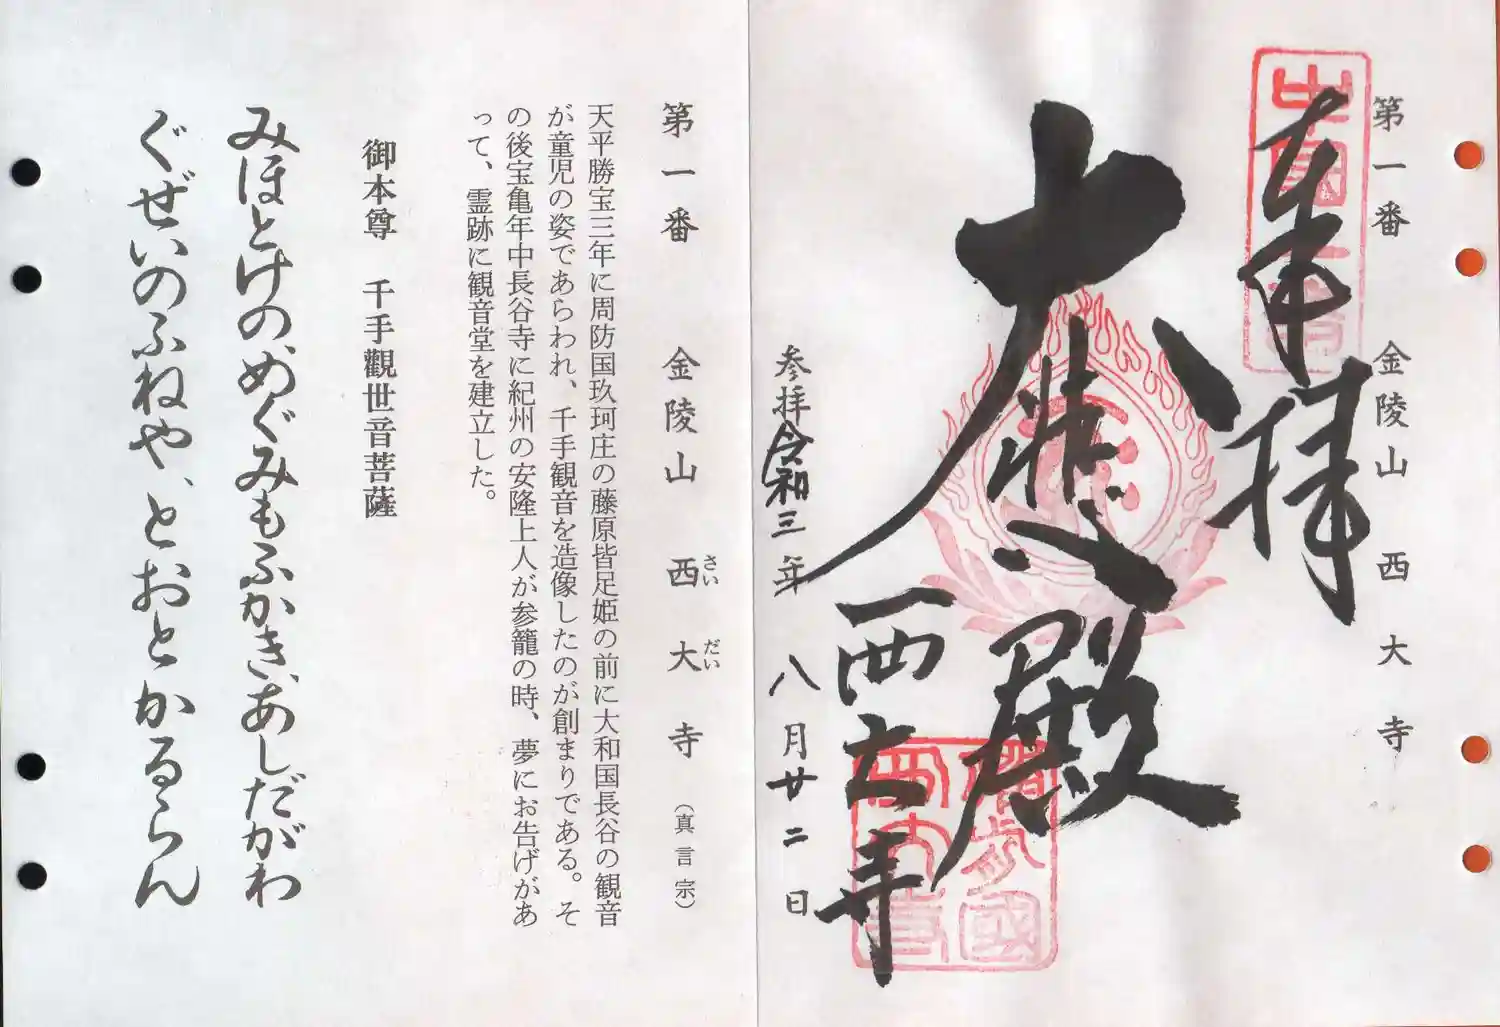 第一番 金陵山 西大寺
奉拝
大悲殿
西大寺
参拝 令和三年 八月廿二日
第一番 金陵山 西大寺 (真言宗)
さい だい
天平勝宝三年に周防国玖珂庄の藤原皆足姫の前に大和国長谷の観音
が童児の姿であらわれ、千手観音を造像したのが創まりである。そ
の後宝亀年中長谷寺に紀州の安隆上人が参籠の時、夢にお告げがあ
って、霊跡に観音堂を建立した。
御本尊 千手觀世音菩薩
みほとけの、めぐみもふかき、あしだがわ
ぐぜいのふねや、とおとかるらん